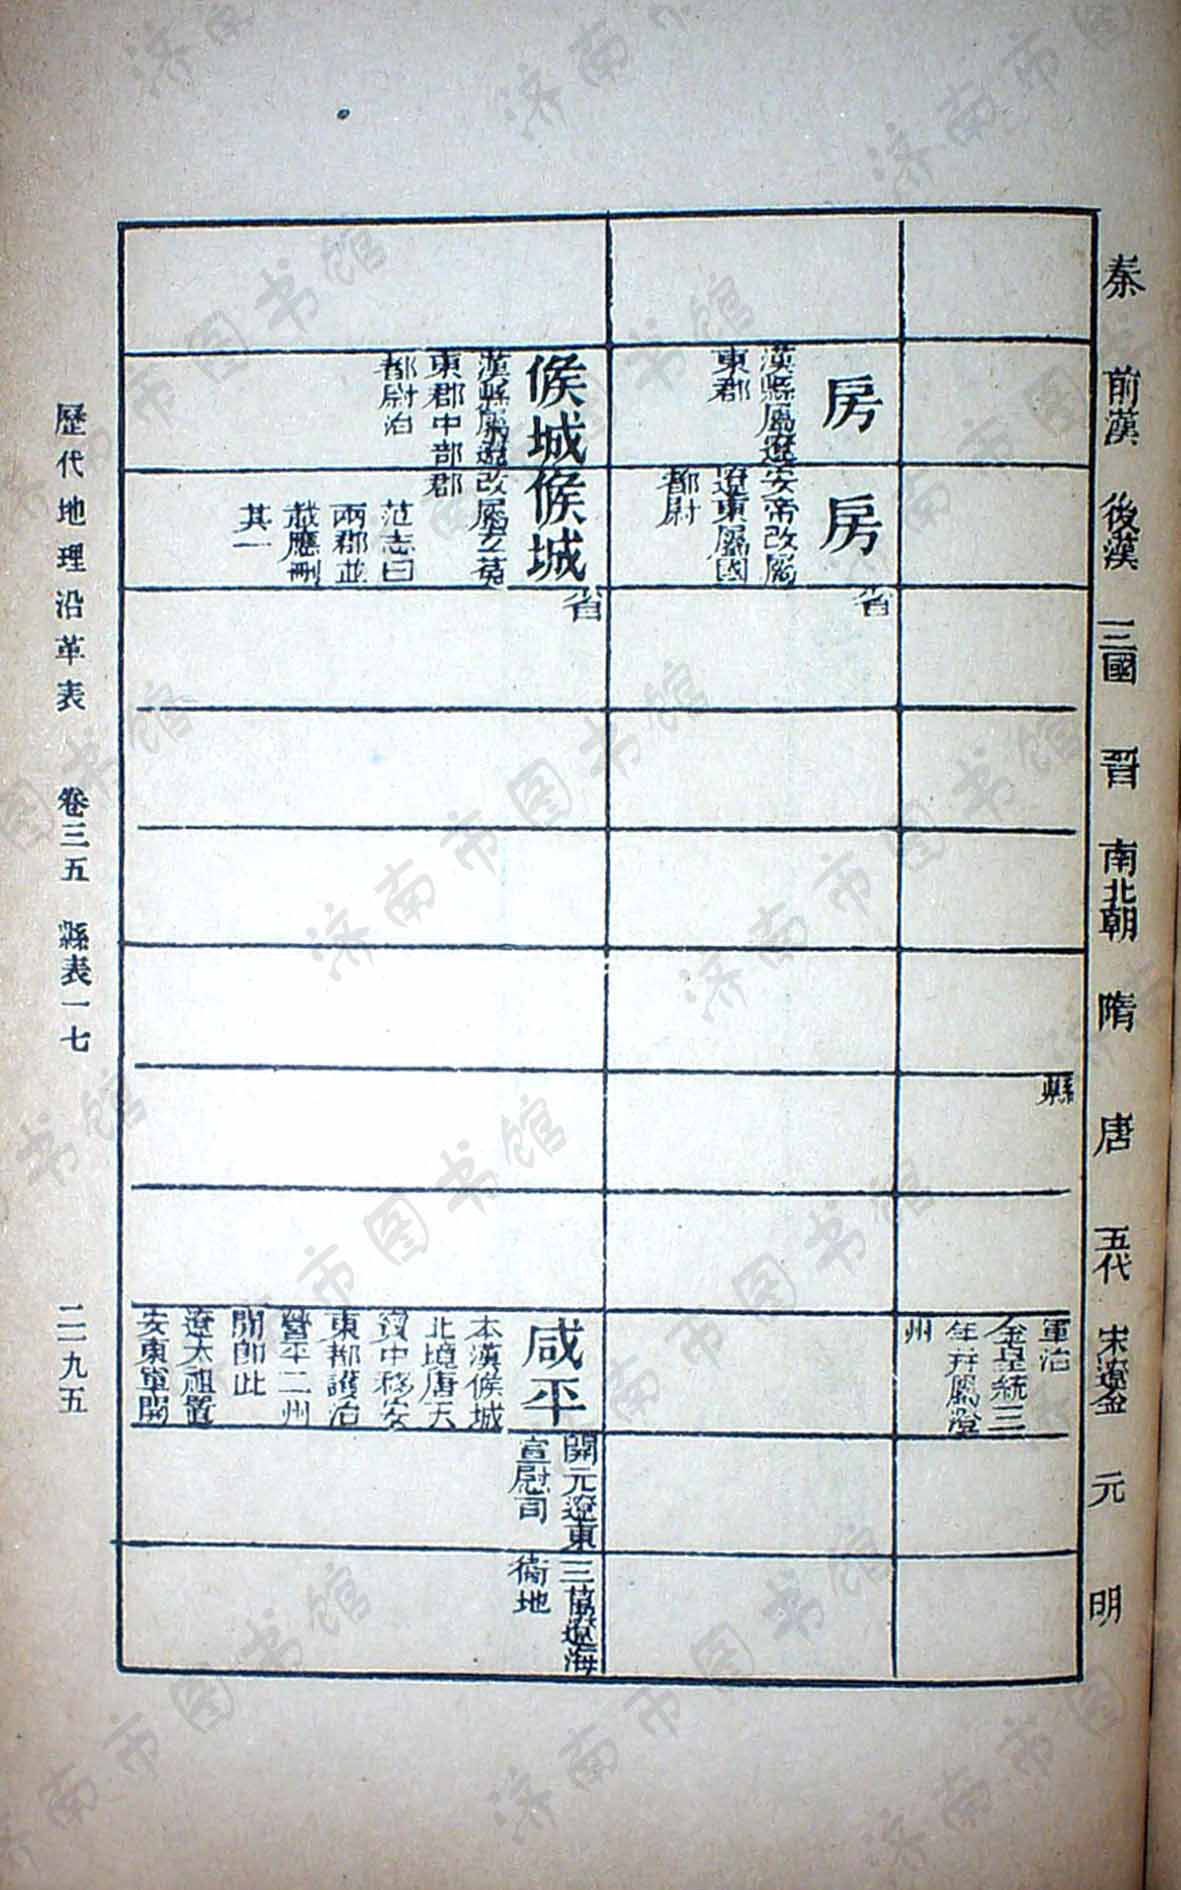 秦
前漢
後漢
三國
晉
南北朝
隋
唐
五代
宋遼金
元
明
縣
軍治
金皇統三
年廢屬澄
州
房
漢縣屬遼
東郡
房
安帝改屬
遼東屬國
都尉
省
候城
漢縣屬遼
東郡中部
都尉治
候城
改屬玄菟
郡
范志曰
兩郡並
載應刪
其一
省
咸平
本漢候城
北境唐天
寶中移安
東都護治
營平二州
開即此
遼太祖置
安東軍開
開元遼東
宣慰司
三萬遼海
衛地
歷代地理沿革表 卷三五 縣表一七 二一九五
济南市图书馆